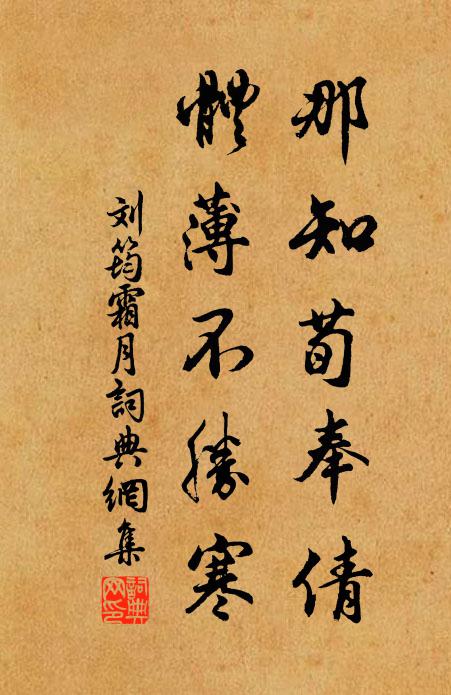 那知荀奉倩
體薄不勝寒
刘筠霜月詞典網集
詞典網印